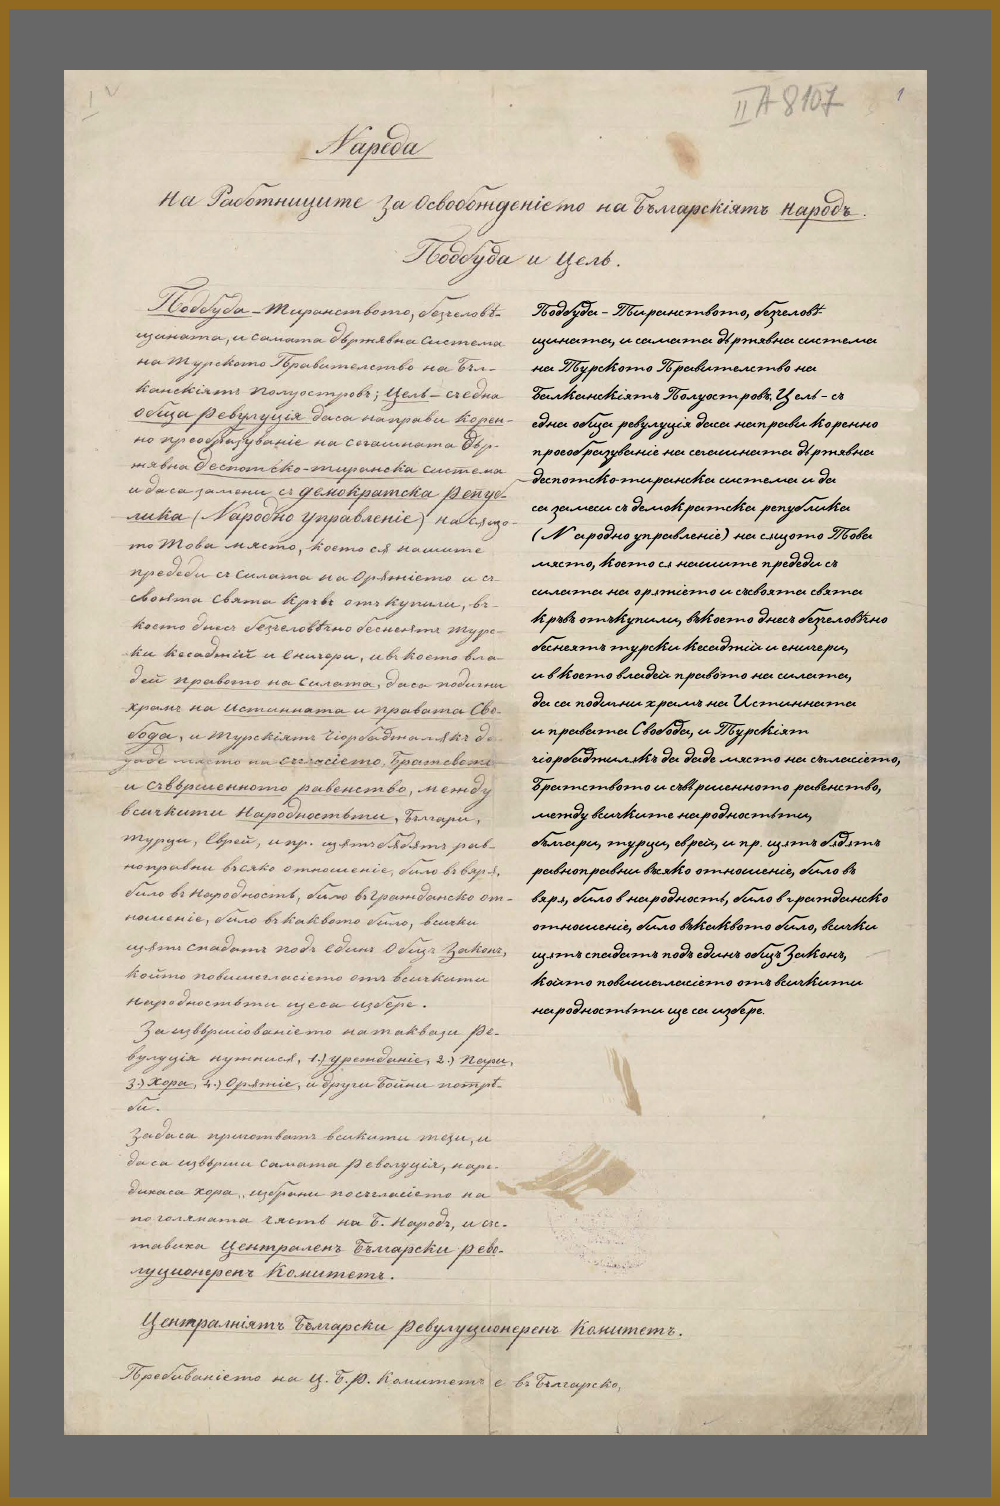 II A 8107
1
Наредa
на Работниците за Освобождението на Българскіятъ народъ.
Подбуда и Цель.
Подбуда – тиранството, безчеловѣ-
щината, и самата държавна система
на турското Правителство на Бъл-
канскіятъ полуостровъ; Цель – съ една
обща револуція даса направи корен-
но преобразуваніе на сегашната дър-
жявна деспотско-тиранска система
и даса замени съ демократска репуб-
лика (Народно управленіе) на сѫщо-
то това място, което сѫ нашите
прededи съ силата на оряжіето и съ
своята свята кръвь откупили, въ-
което днесъ безчеловѣчно беснеятъ турс-
ки кесаджій и еничери, и въ което вла-
дей правото на силата, даса подигни
храмъ на истинната и правата Сво-
бода, и турскіятъ чіорбаджилѫкъ да
даде място на съгласіето, братевото
и съвършенното равенство, между
всичкити Народностьти, Българи,
турци, Еврей, и пр. щѫтъ бѫдѫтъ рав-
ноправни въсяко отношеніе, било въ вяря,
било въ народность, било въ гражданско от-
ношеніе, било въ каквото било, всички
щѫтъ спадатъ подъ единъ Общъ Законъ,
който повишегласіето отъ всичкити
народностьти щеса избере.
За извършіованіето на таквази Ре-
вулуція нужнисѫ, 1.) урежданіе, 2.) Пари,
3.) Хора, 4.) Оряжіе, и други бойни потрѣ-
би.
Задаса приготвятъ всичкити тези, и
даса извърши самата Революція, наре-
дихаса хора, избрани посъгласіето на
поголямата часть на Б. Народъ, и със-
тавиха Централенъ Български рево-
луционеренъ Комитетъ.
Централніятъ Български Ревулуционеренъ Комитетъ.
Пребиваніето на Ц. Б. Р. Комитетъ е въ Българско,
Подбуда – Тиранството, безчеловѣ-
щината, и самата държявна система
на Турското Правителство на
Балканскіятъ Полуостровъ; Цель – съ
една обща ревулуція даса направи коренно
прообразуваніе на сегашната държявна
деспотскотиранска система и да
са замеси съ демократска република
(Народно управленіе) на сящото Това
място, което ся нашите прededи съ
силата на оряжіето и съсвоята свята
кръвъ отъкупили, въкоето днесъ безчеловѣчно
беснеятъ турски кесаджіи и еничери,
и в което владей правото на силата,
да са подигни храмъ на Истинната
и правата Свобода, и Турскіят
чіорбаджилякъ да даде място на съгласіето,
Братството и съвършенното равенство,
между всичките народностьти,
българи, турци, еврей, и пр. щятъ бядятъ
равноправни всяко отношеніе, било въ
вяря, било в народность, било в гражданско
отношеніе, било въкаквото било, всички
щятъ спадатъ подъ единъ общъ Законъ,
който повишегласіето отъ всичкити
народностьти ще са избере.